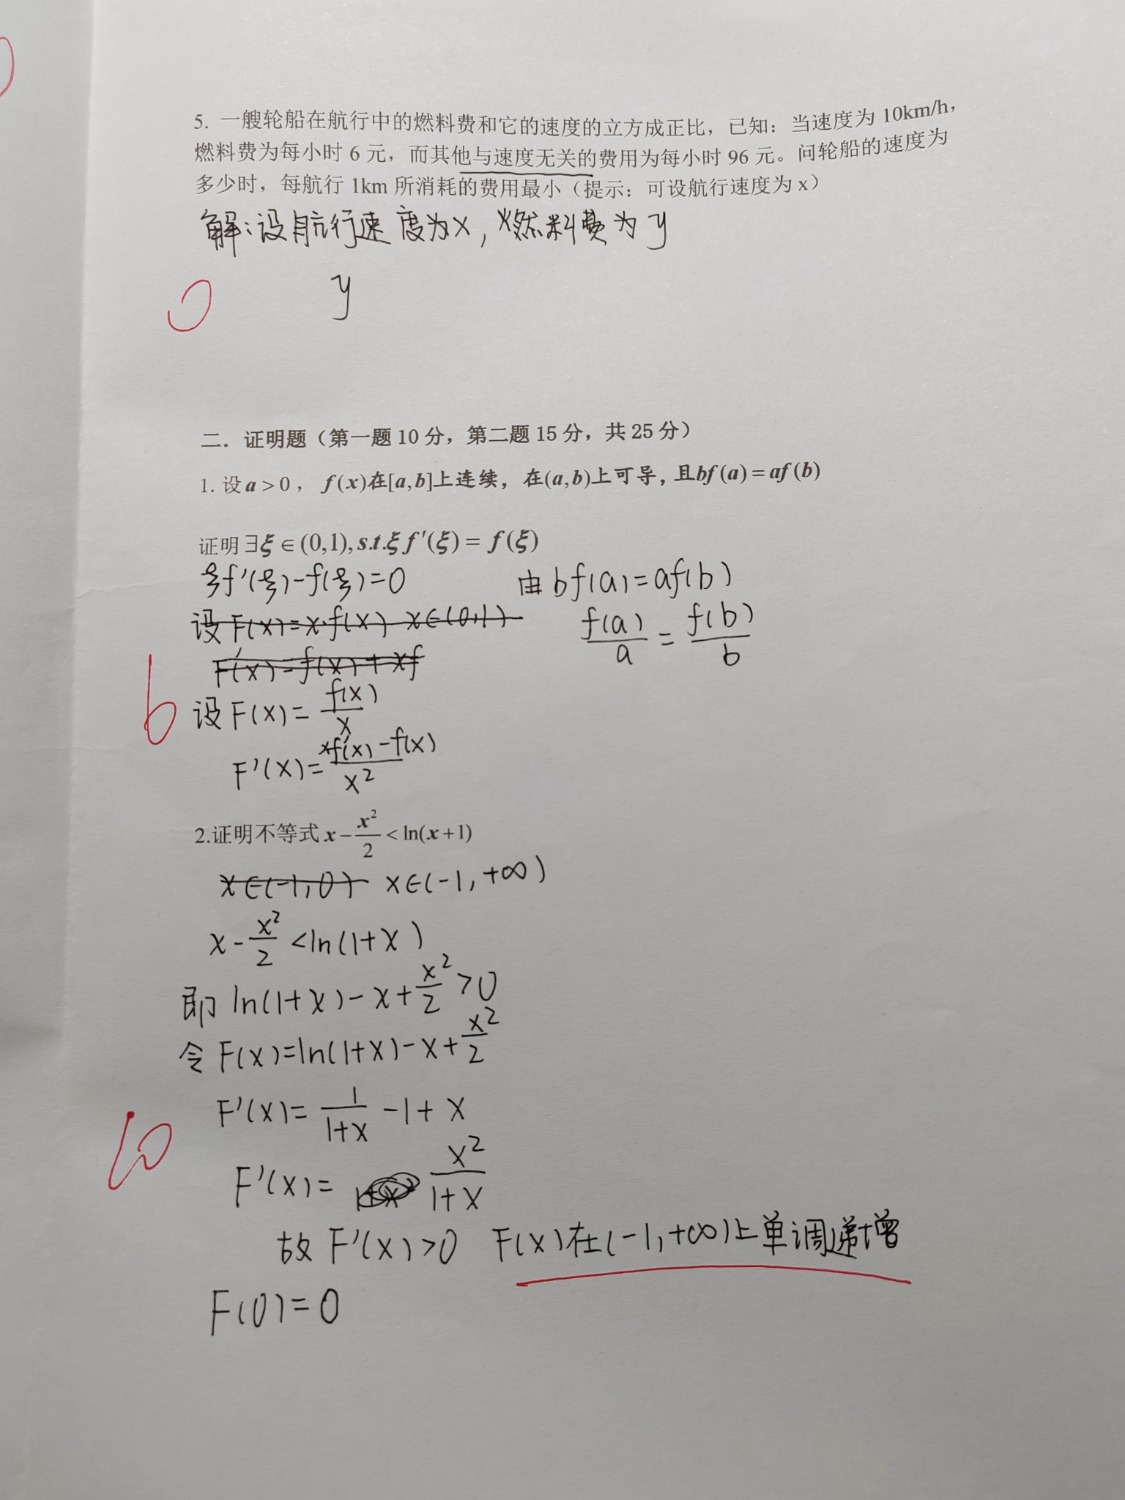 5. 一艘轮船在航行中的燃料费和它的速度的立方成正比，已知：当速度为 10km/h，
燃料费为每小时 6 元，而其他与速度无关的费用为每小时 96 元。问轮船的速度为
多少时，每航行 1km 所消耗的费用最小（提示：可设航行速度为 x）
解：设航行速度为x，燃料费为y
y
0
二．证明题（第一题 10 分，第二题 15 分，共 25 分）
1. 设a>0，f(x)在[a,b]上连续，在(a,b)上可导，且bf(a)=af(b)
证明∃ξ∈(0,1),s.t.ξf′(ξ)=f(ξ)
ξf′(ξ)-f(ξ)=0 由bf(a)=af(b)
设F(x)=x·f(x) x∈(0,1) f(a)/a = f(b)/b
F′(x)=f(x)+xf
6
设F(x)=f(x)/x
F′(x)=xf′(x)-f(x)/x²
2.证明不等式x-x²/2<ln(x+1)
x∈(-1,0) x∈(-1,+∞)
x-x²/2<ln(1+x)
即 ln(1+x)-x+x²/2>0
令F(x)=ln(1+x)-x+x²/2
F′(x)=1/1+x -1+x
10
F′(x)= x²/1+x
故F′(x)>0 F(x)在(-1,+∞)上单调递增
F(0)=0